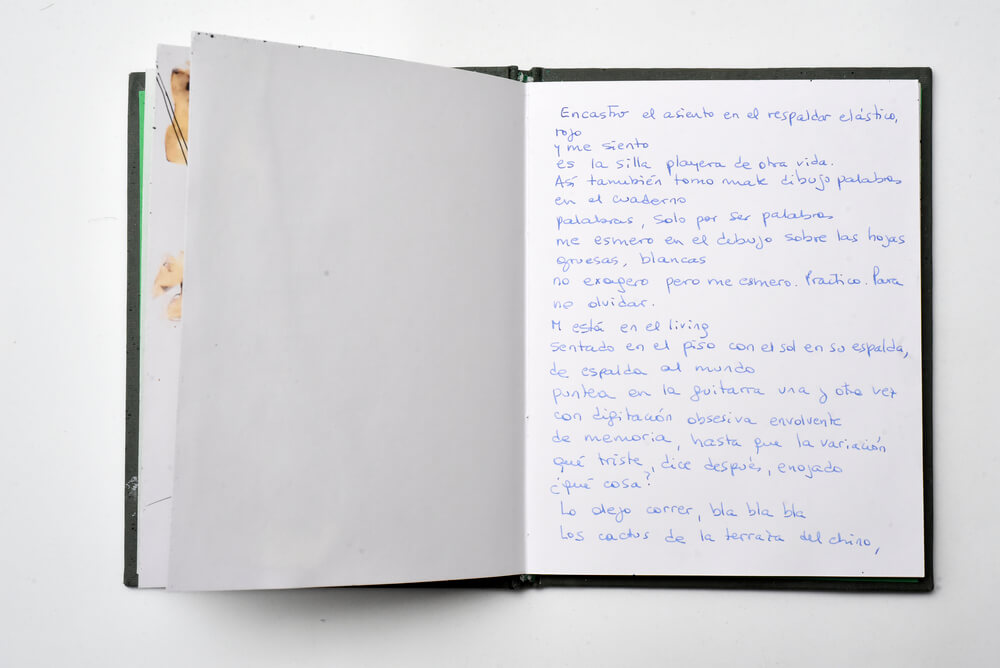 Encastro el asiento en el respaldar elástico,
rojo
y me siento
es la silla playera de otra vida.
Así también tomo mate dibujo palabras
en el cuaderno
palabras, solo por ser palabras
me esmero en el dibujo sobre las hojas
gruesas, blancas
no exagero pero me esmero. Practico. Para
no olvidar.
M está en el living
sentado en el piso con el sol en su espalda,
de espalda al mundo
puntea en la guitarra una y otra vez
con digitación obsesiva envolvente
de memoria, hasta que la variación
qué triste, dice después, enojado
¿qué cosa?
Lo dejo correr, bla bla bla
Los cactus de la terraza del chino,